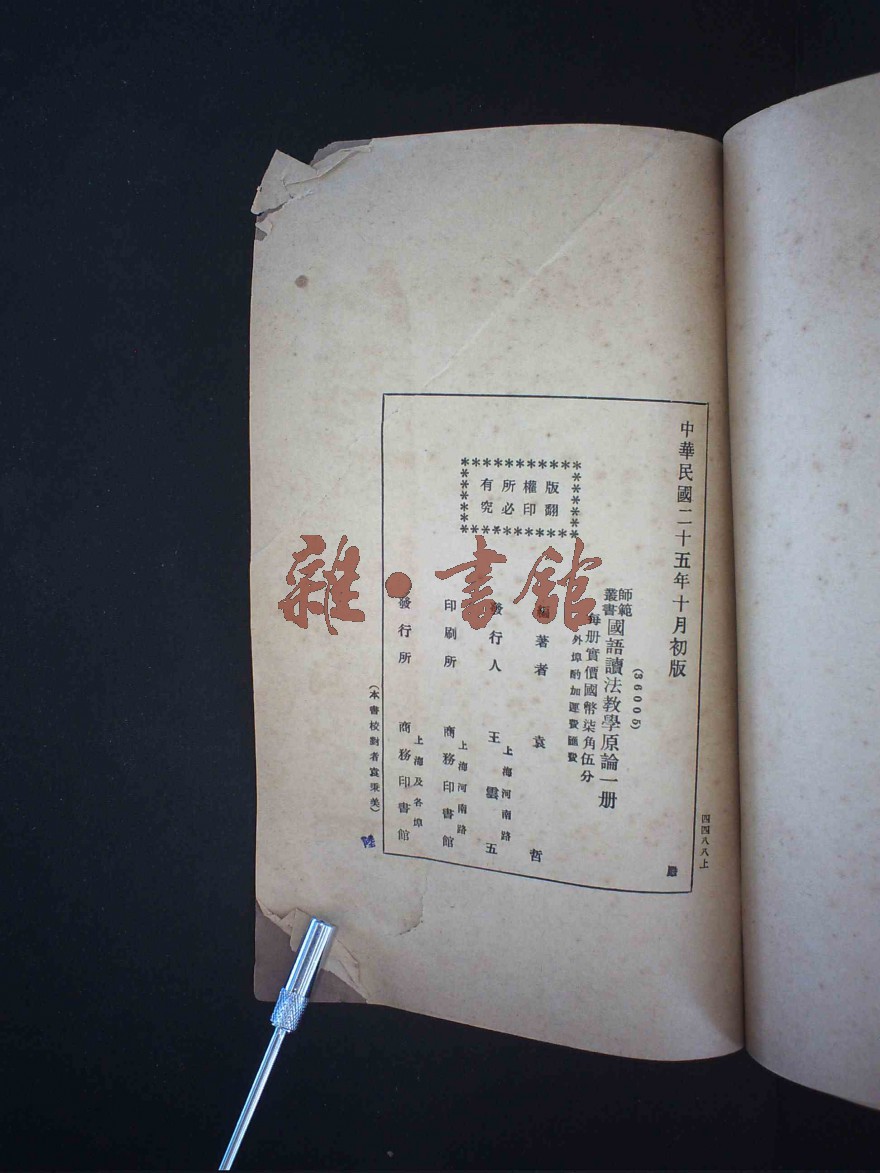 四四八八上
中華民國二十五年十月初版
(36005)
師範叢書 國語讀法教學原論一册
每册實價國幣柒角伍分
外埠酌加運費匯費
版權所有
翻印必究
編著者 袁哲
發行人 王雲五
上海河南路
印刷所 商務印書館
上海河南路
發行所 商務印書館
上海及各埠
(本書校對者袁秉美)
雜·書館